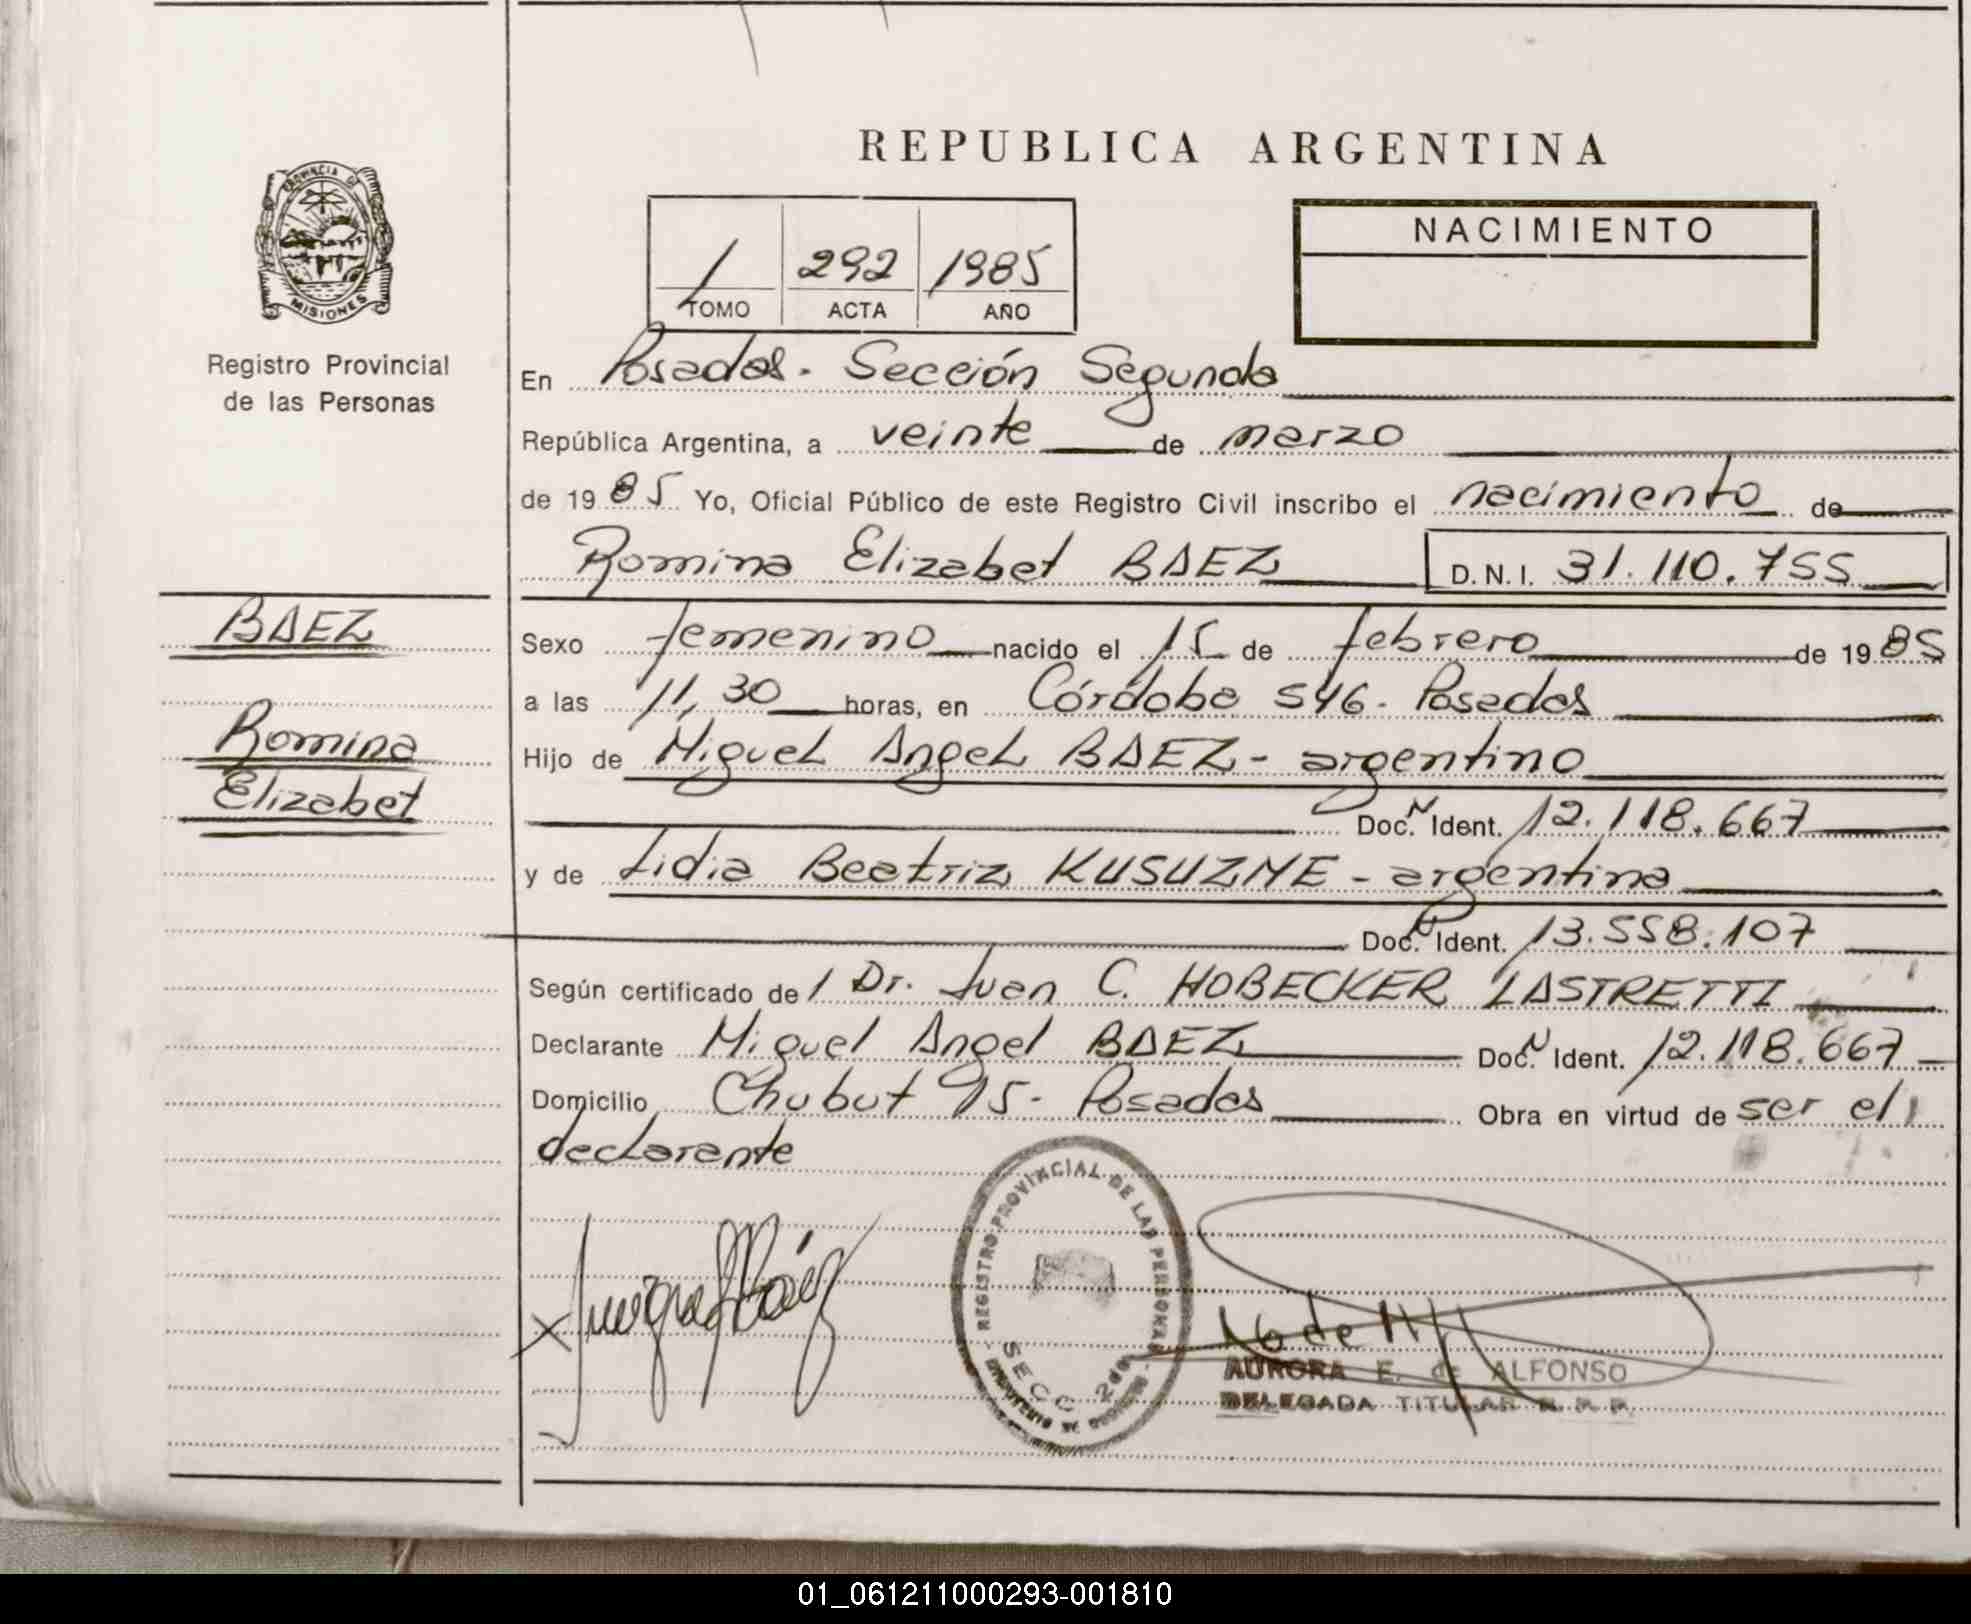 REPUBLICA ARGENTINA
PROVINCIA DE
MISIONES
Registro Provincial
de las Personas
1 292 1985
TOMO ACTA AÑO
NACIMIENTO
En Posadas. Sección Segunda
República Argentina, a veinte de marzo
de 1985 Yo, Oficial Público de este Registro Civil inscribo el nacimiento de
Romina Elizabet BAEZ D.N.I. 31.110.755
BAEZ
Romina
Elizabet
Sexo femenino nacido el 15 de febrero de 1985
a las 11,30 horas, en Córdoba 546. Posadas
Hijo de Miguel Angel BAEZ - argentino
Doc. N Ident. 12.118.667
y de Lidia Beatriz KUSUZME - argentina
Doc. N Ident. 13.558.107
Según certificado del Dr. Juan C. HOBECKER LASTRETTI
Declarante Miguel Angel BAEZ Doc. N Ident. 12.118.667
Domicilio Chubut 95 - Posadas Obra en virtud de ser el
declarante
REGISTRO PROVINCIAL DE LAS PERSONAS
SECC. 2da.
AURORA E. de ALFONSO
DELEGADA TITULAR R. P. P.
01_061211000293-001810